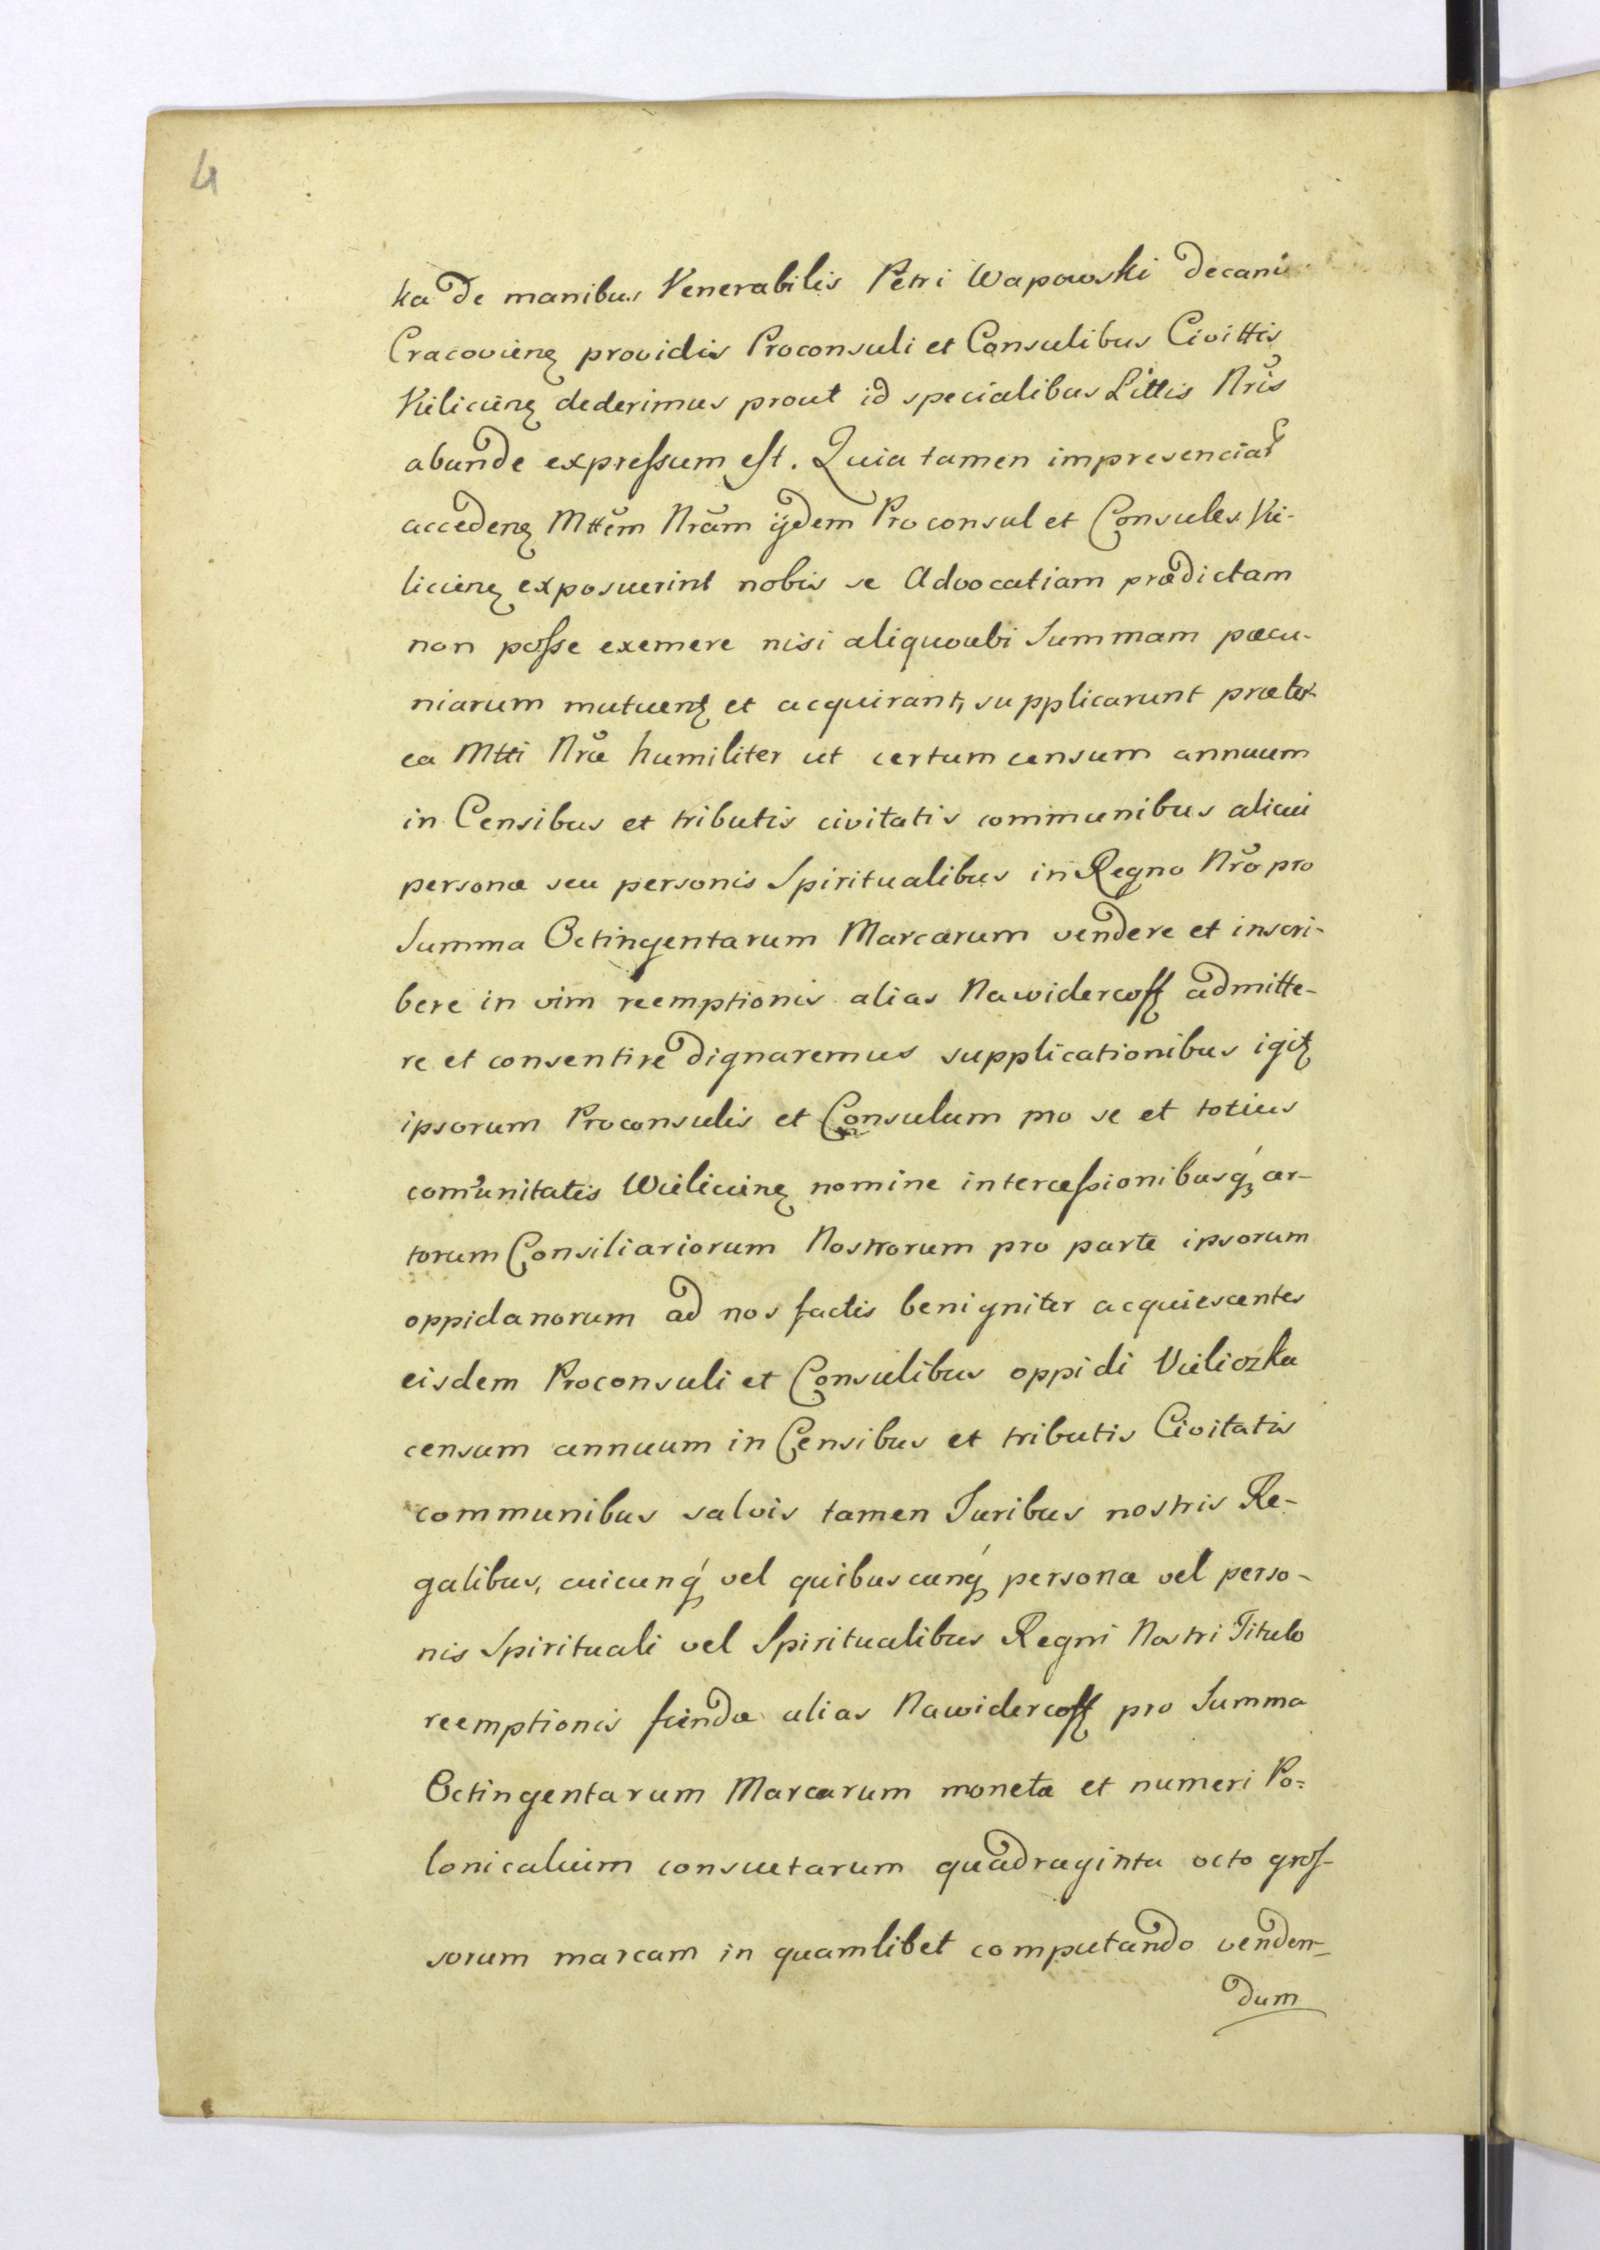 4
ka de manibus Venerabilis Petri Wapowski decani
Cracovieñ providis Proconsuli et Consulibus Civittis
Vielicieñ dederimus prout id specialibus Littis Nris
abunde expreſsum eſt. Quia tamen impresenciar
accedeñ Mttem Nram ijdem Proconsul et Consules Vie-
licieñ exposuerint nobis se Advocatiam prædictam
non poſse exemere nisi aliquoubi Summam pæcu-
niarum mutuent et acquirant, supplicarunt præter
ea Mtti Nræ humiliter ut certum censum annuum
in Censibus et tributis civitatis communibus alicui
personæ seu personis Spiritualibus in Regno Nro pro
Summa Octingentarum Marcarum vendere et inscri-
bere in vim reemptionis alias Nawidercoff admitte-
re et consentire dignaremus supplicationibus igit
ipsorum Proconsulis et Consulum pro se et totius
comunitatis Wielicieñ nomine interceſsionibusq cer-
torum Consiliariorum Nostrorum pro parte ipsorum
oppidanorum ad nos factis benigniter acquiescentes
eisdem Proconsuli et Consulibus oppidi Vieliczka
censum annuum in Censibus et tributis Civitatis
communibus salvis tamen Juribus nostris Re-
galibus, cuicunq vel quibuscunq personæ vel perso-
nis Spirituali vel Spiritualibus Regni Nostri Titulo
reemptionis fiendæ alias Nawidercoff pro Summa
Octingentarum Marcarum monetæ et numeri Po=
lonicalium consuetarum quadraginta octo groſ-
sorum marcam in quamlibet computando venden-
dum